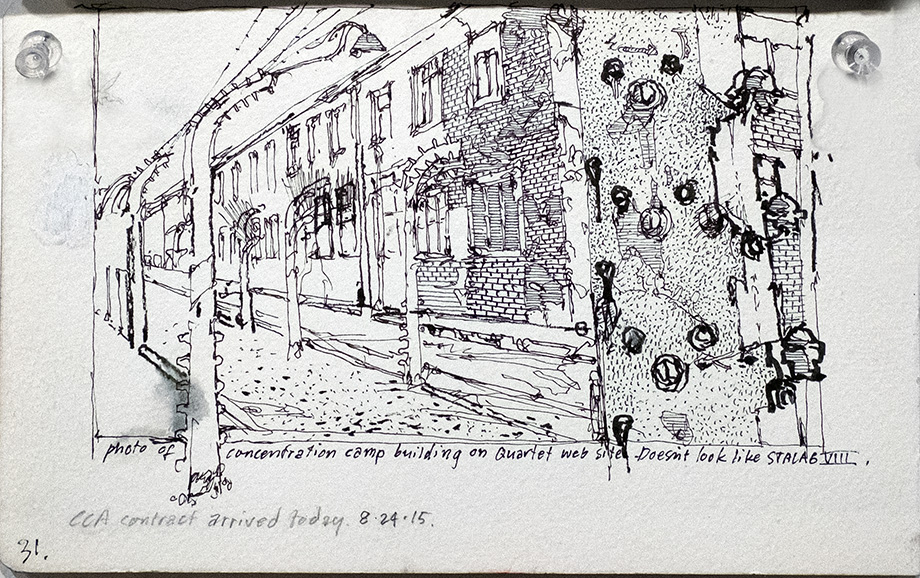 photo of concentration camp building on Quartet web site. Doesn't look like STALAG VIII.
CCA contract arrived today. 8·24·15.
31.